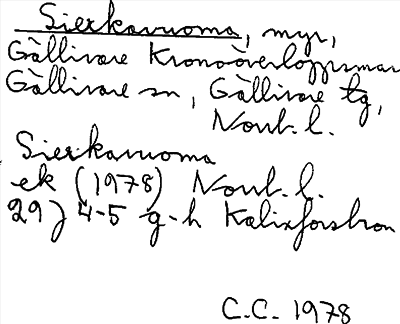 Sierkavuoma, myr,
Gällivare Kronoöverloppsmar
Gällivare sn, Gällivare tg,
Norrb. l.
Sierkavuoma
ek (1978) Norrb. l.
29J 4-5 g-h Kalixforsbron
C.C. 1978